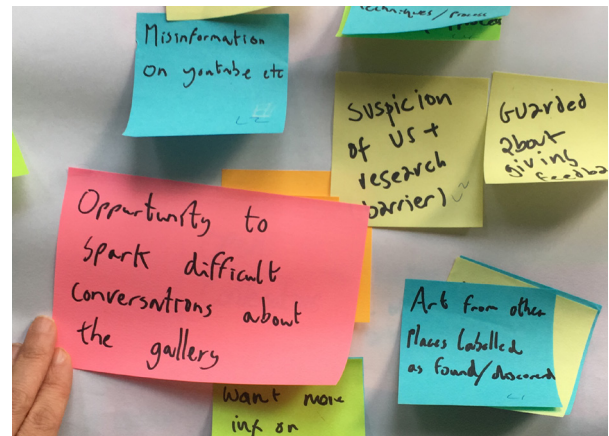 techniques/process
Misinformation
On youtube etc
Suspicion
of us +
research
barrier)
Guarded
about
giving
feedba
Opportunity to
Spark difficult
Conversations about
the gallery
Art from other
places labelled
as found/discovered
Want more
info on